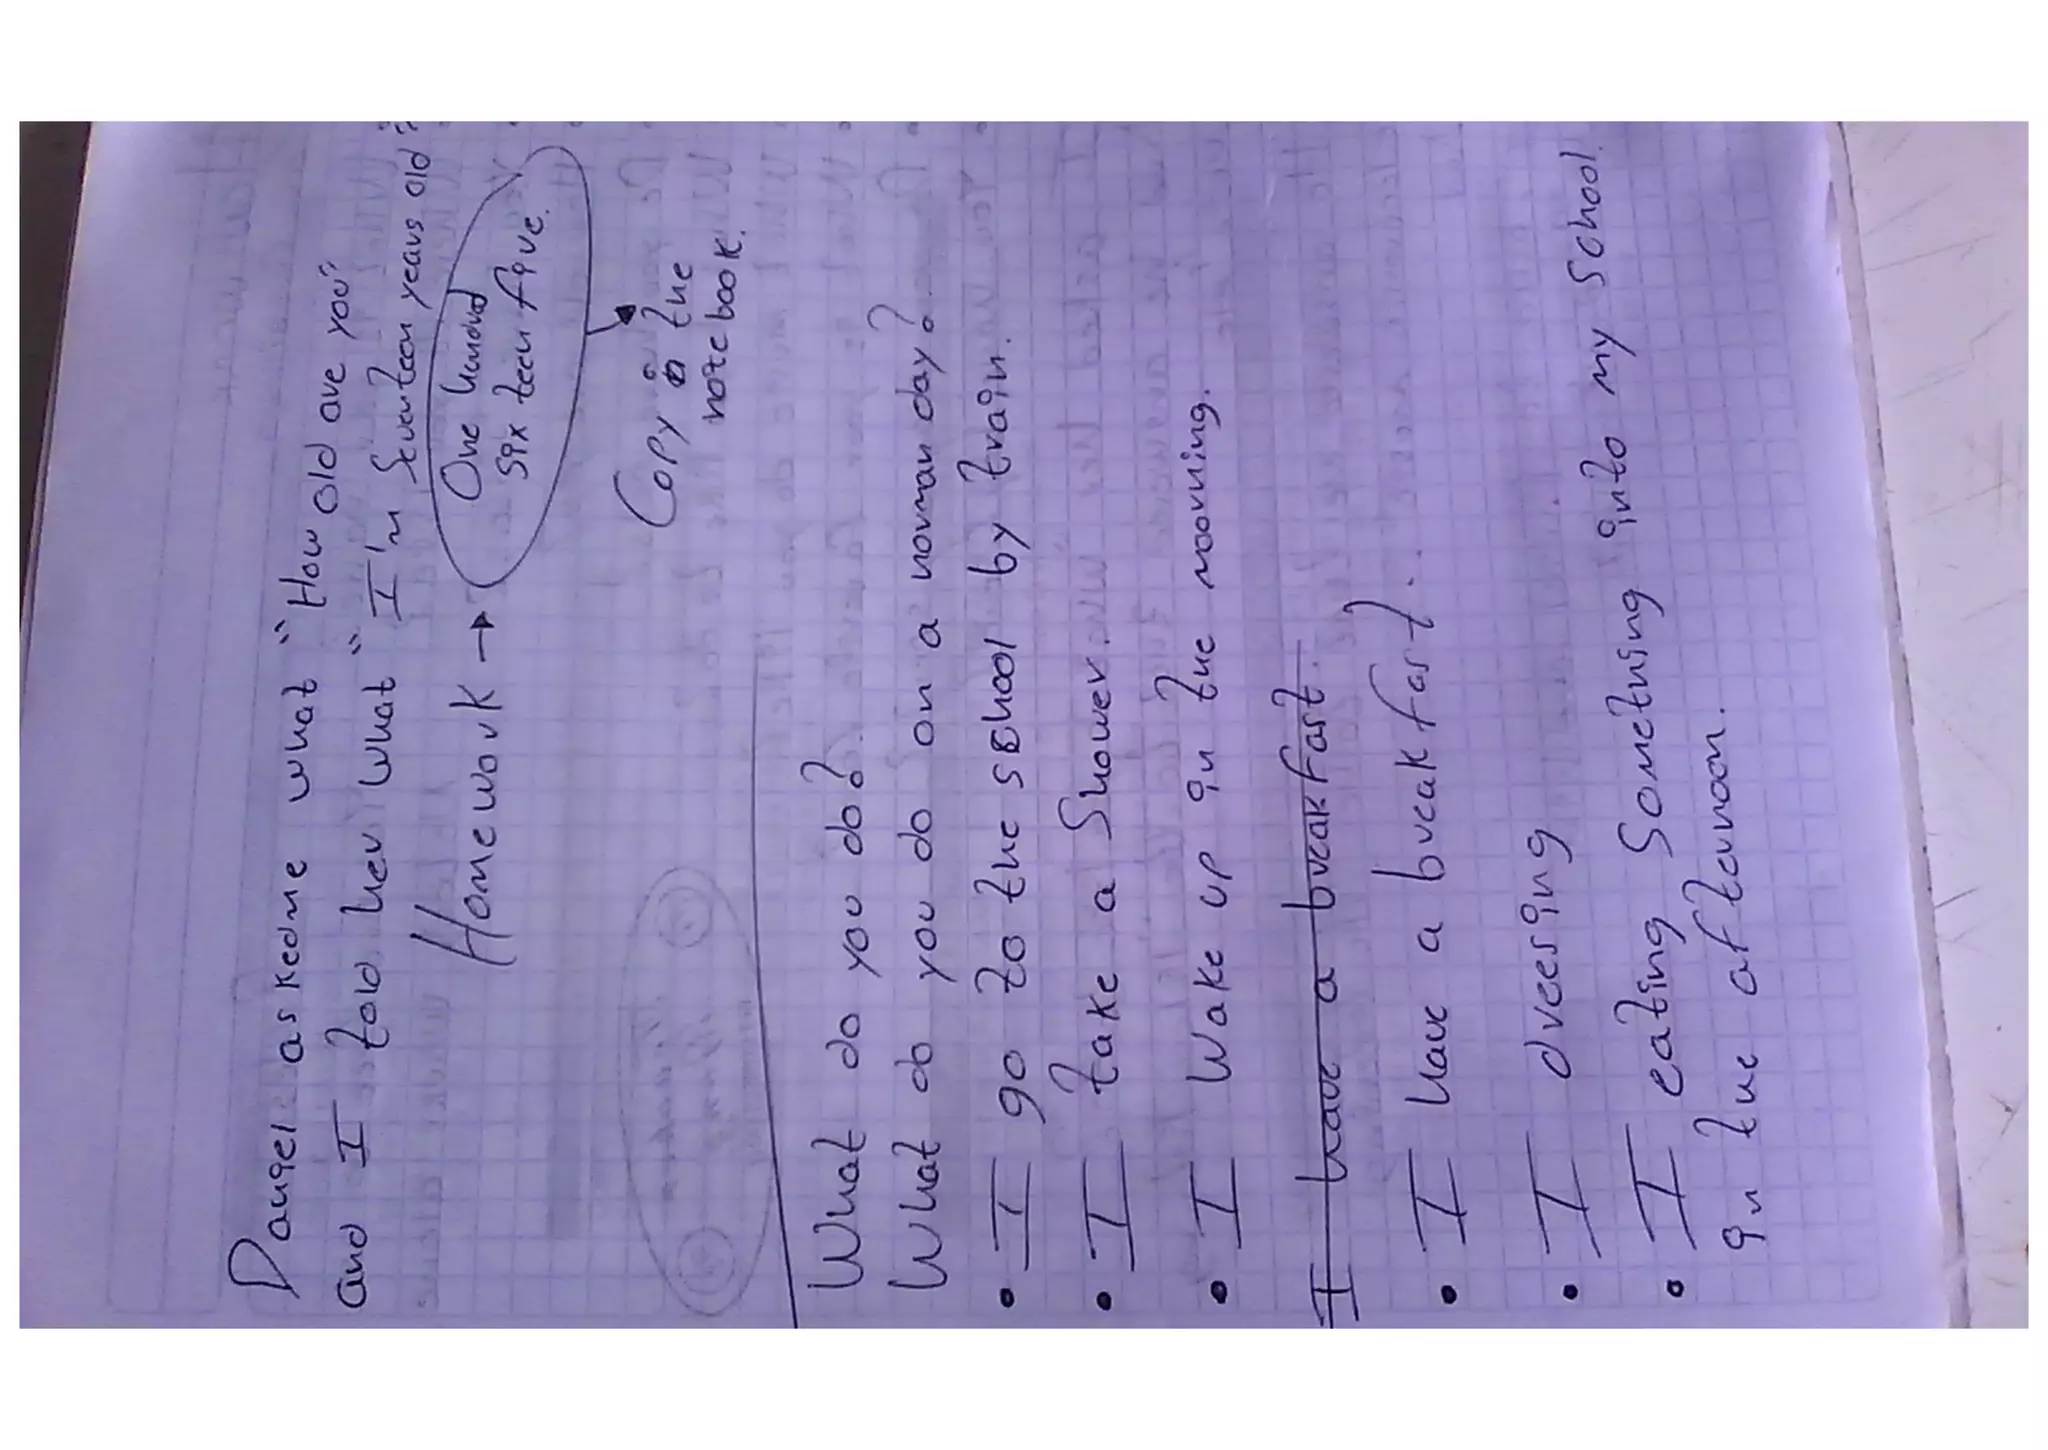 Daniel askedme what "How old are you"
and I told her what "I'm Seventeen years old"
Homework → One hundred
six teen five.
Copy in the
note book.
What do you do?
What do you do on a norman day?
• I go to the school by train.
• I take a Shower.
• I Wake up in the moorning.
I have a breakfast.
• I have a breakfast.
• I dreesing
• I eating Something into my School.
in the afternoon.